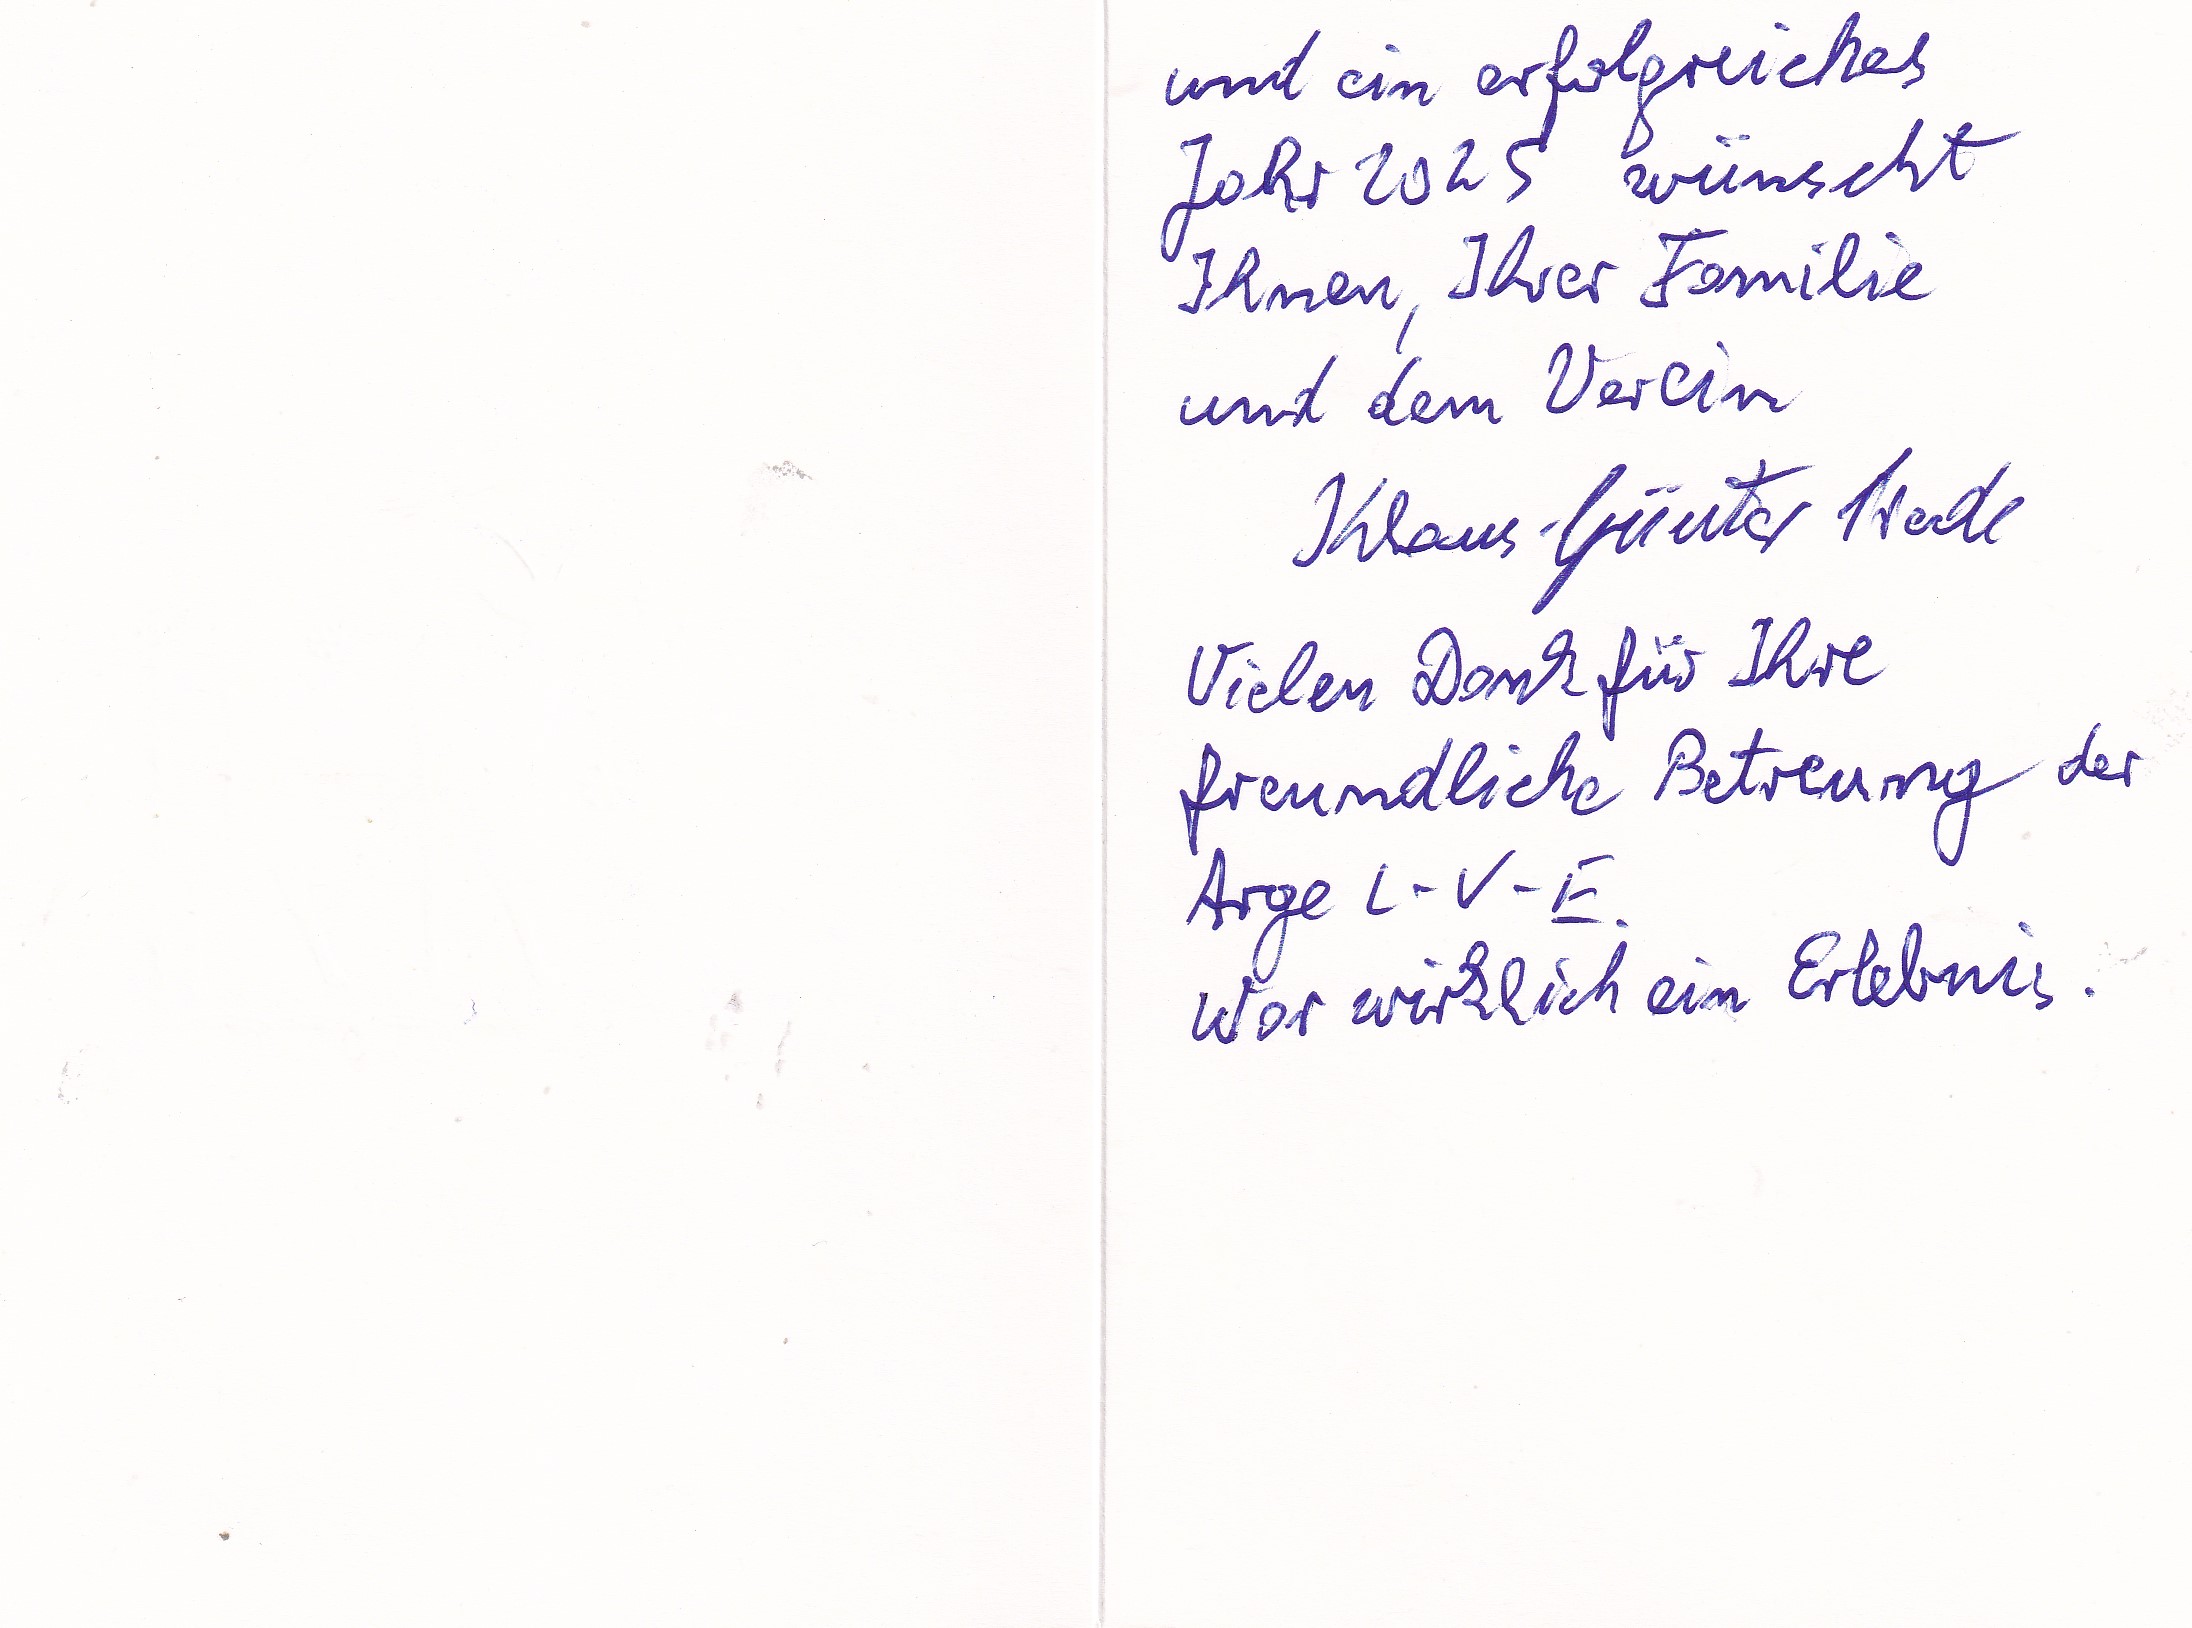 und ein erfolgreiches
Jahr 2025 wünscht
Ihnen, Ihrer Familie
und dem Verein
Klaus-Günter
Vielen Dank für Ihre
freundliche Betreuung der
Arge L-V-E.
War wirklich ein Erlebnis.